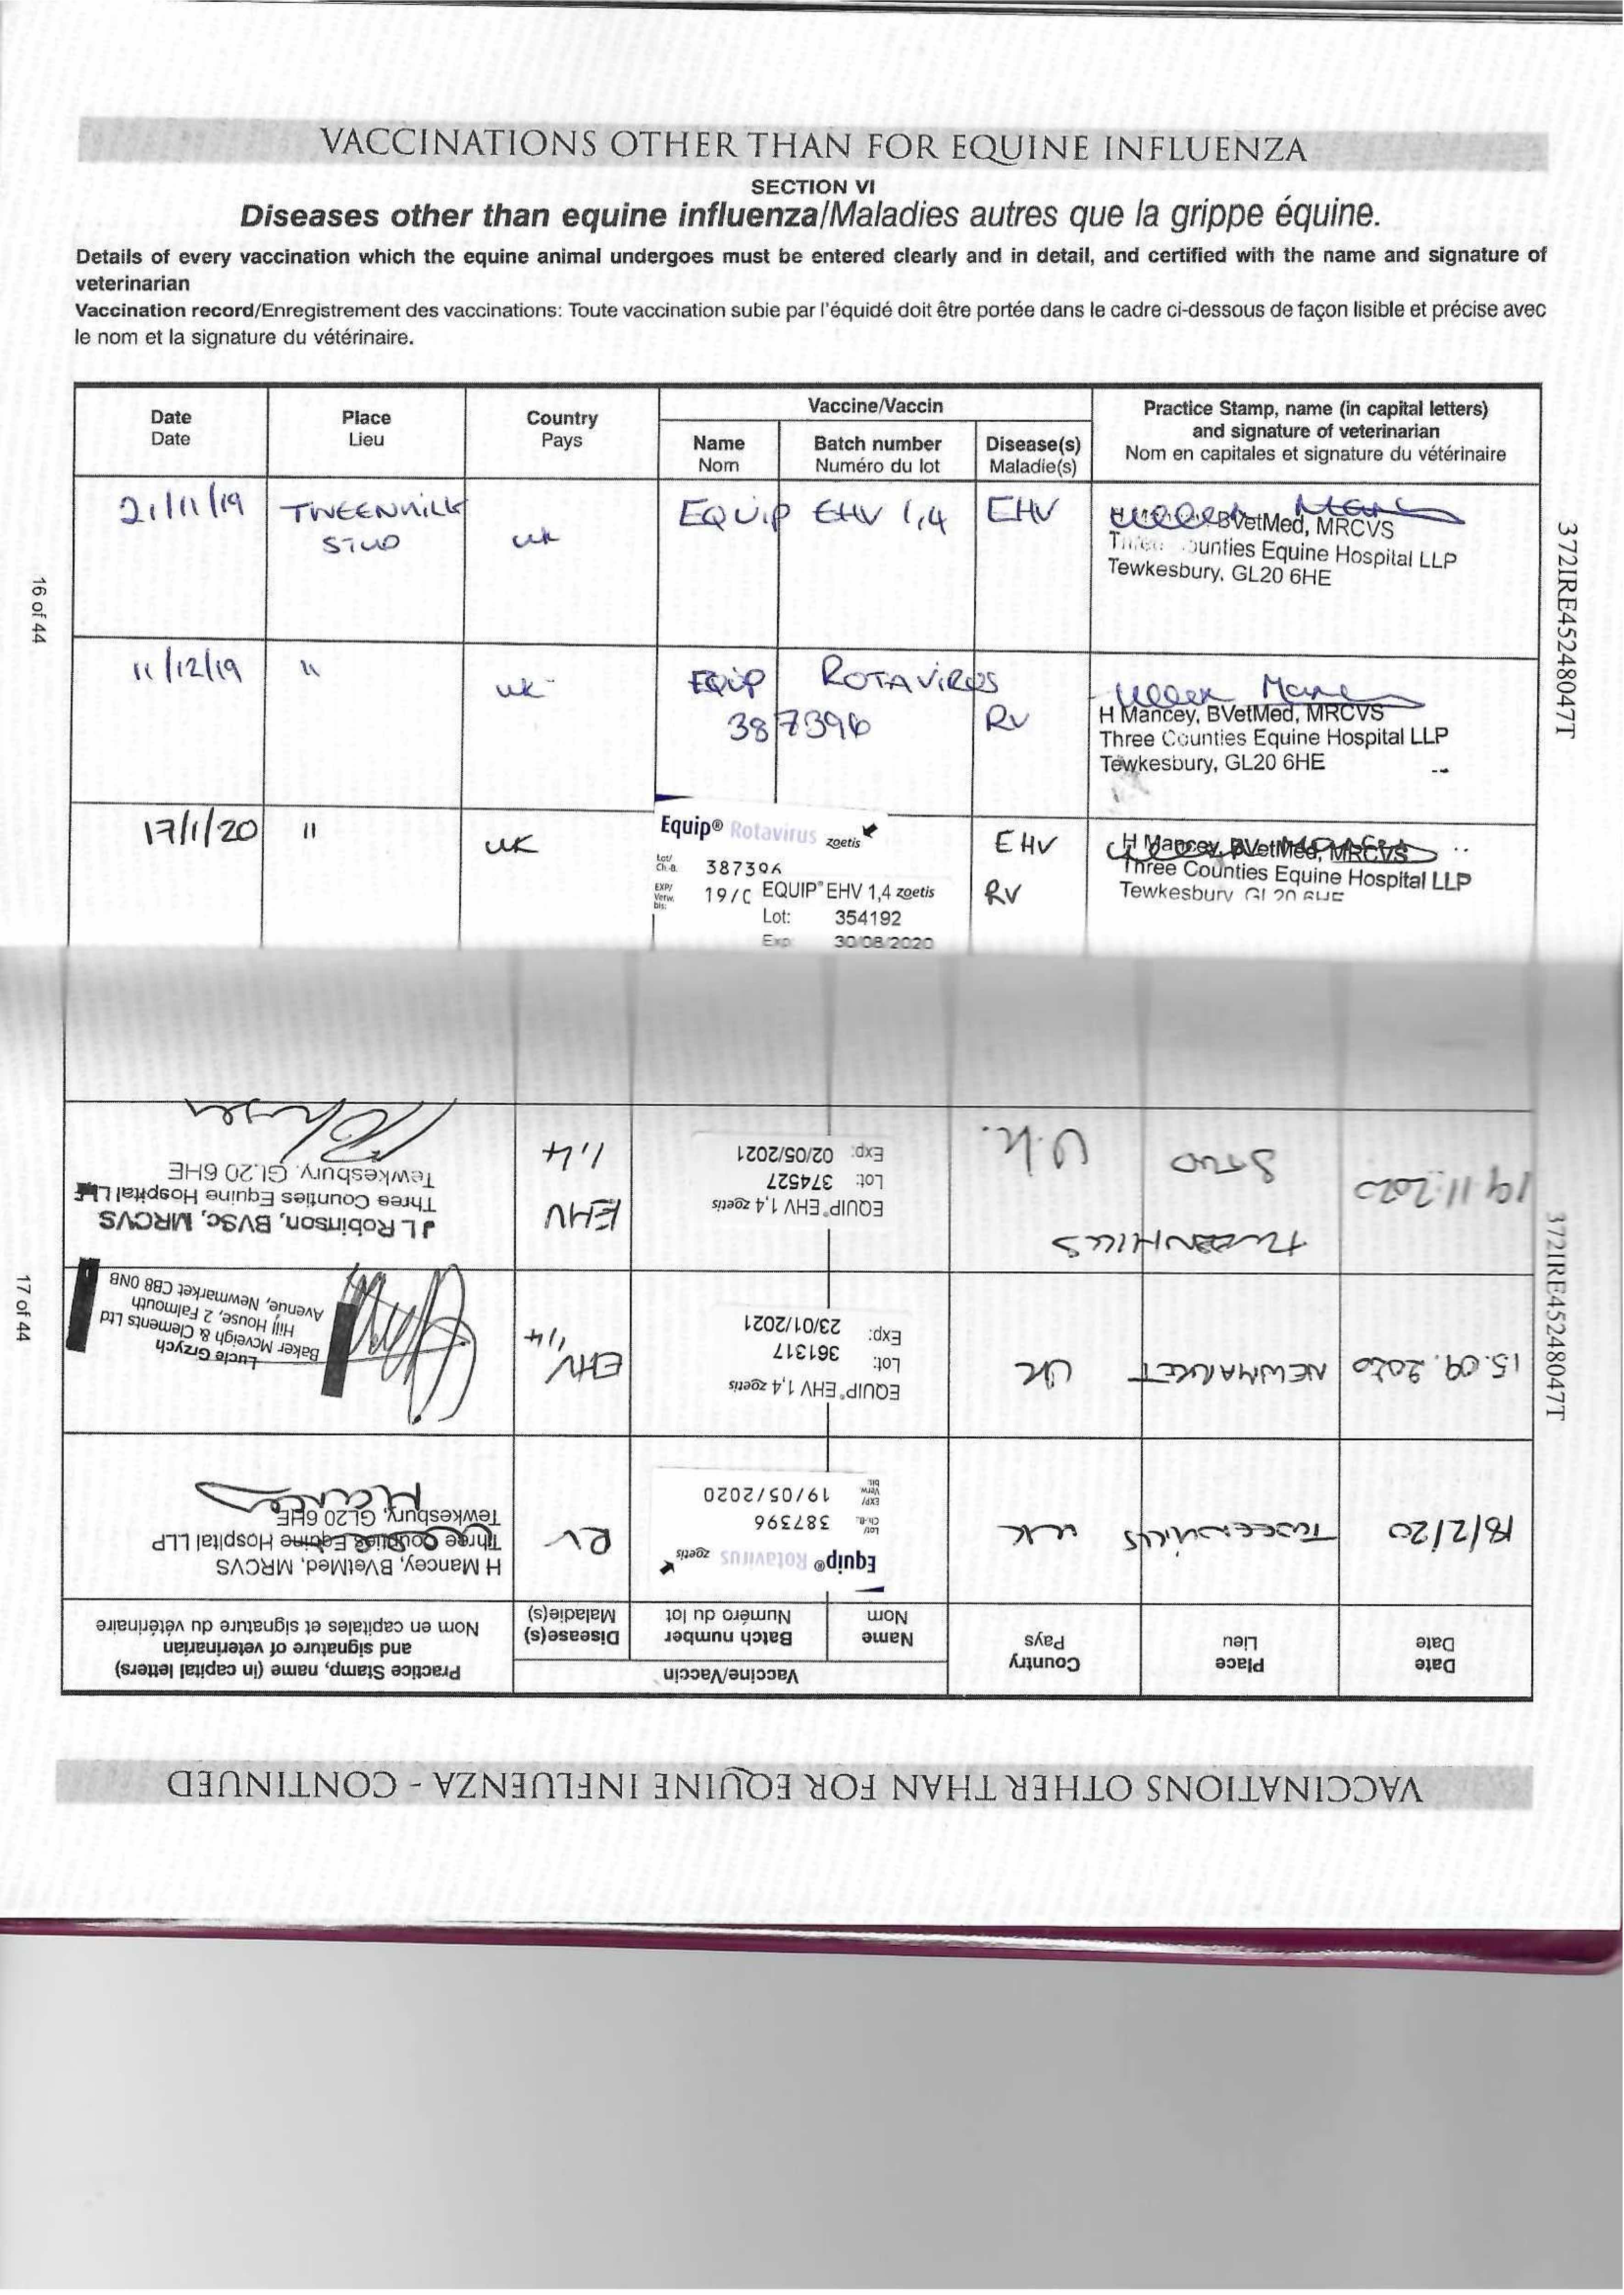 VACCINATIONS OTHER THAN FOR EQUINE INFLUENZA
SECTION VI
Diseases other than equine influenza/Maladies autres que la grippe équine.
Details of every vaccination which the equine animal undergoes must be entered clearly and in detail, and certified with the name and signature of
veterinarian
Vaccination record/Enregistrement des vaccinations: Toute vaccination subie par l'équidé doit être portée dans le cadre ci-dessous de façon lisible et précise avec
le nom et la signature du vétérinaire.
Date
Date
Place
Lieu
Country
Pays
Vaccine/Vaccin
Name
Nom
Batch number
Numéro du lot
Disease(s)
Maladie(s)
Practice Stamp, name (in capital letters)
and signature of veterinarian
Nom en capitales et signature du vétérinaire
21/11/19
TWEENHILLS
STUD
UK
EQUIP EHV 1,4
EHV
BVetMed, MRCVS
Counties Equine Hospital LLP
Tewkesbury, GL20 6HE
11/12/19
"
UK
EQUIP ROTAVIRUS
387396
RV
H Mancey, BVetMed, MRCVS
Three Counties Equine Hospital LLP
Tewkesbury, GL20 6HE
17/1/20
"
UK
Equip® Rotavirus zoetis
Lot/
Ch.-B.
387396
EXP/
Verw.
bis:
19/0
EQUIP® EHV 1,4 zoetis
Lot: 354192
Exp: 30/08/2020
EHV
RV
H Mancey, BVetMed, MRCVS
Three Counties Equine Hospital LLP
Tewkesbury GL20 6HE
16 of 44
372IRE45248047T
VACCINATIONS OTHER THAN FOR EQUINE INFLUENZA - CONTINUED
Date
Date
Place
Lieu
Country
Pays
Vaccine/Vaccin
Name
Nom
Batch number
Numéro du lot
Disease(s)
Maladie(s)
Practice Stamp, name (in capital letters)
and signature of veterinarian
Nom en capitales et signature du vétérinaire
18/2/20
Tweenhills
UK
Equip® Rotavirus zoetis
Lot/
Ch.-B.
387396
EXP/
Verw.
bis:
19/05/2020
RV
H Mancey, BVetMed, MRCVS
Three Counties Equine Hospital LLP
Tewkesbury, GL20 6HE
15.09.2020
NEWMARKET
UK
EQUIP® EHV 1,4 zoetis
Lot: 361317
Exp: 23/01/2021
EHV
1,4
Lucie Grzych
Baker Mcveigh & Clements Ltd
Hill House, 2 Falmouth
Avenue, Newmarket CB8 0NB
19.11.2020
TWEENHILLS
STUD
U.K.
EQUIP® EHV 1,4 zoetis
Lot: 374527
Exp: 02/05/2021
EHV
1,4
J L Robinson, BVSc, MRCVS
Three Counties Equine Hospital LLP
Tewkesbury, GL20 6HE
17 of 44
372IRE45248047T